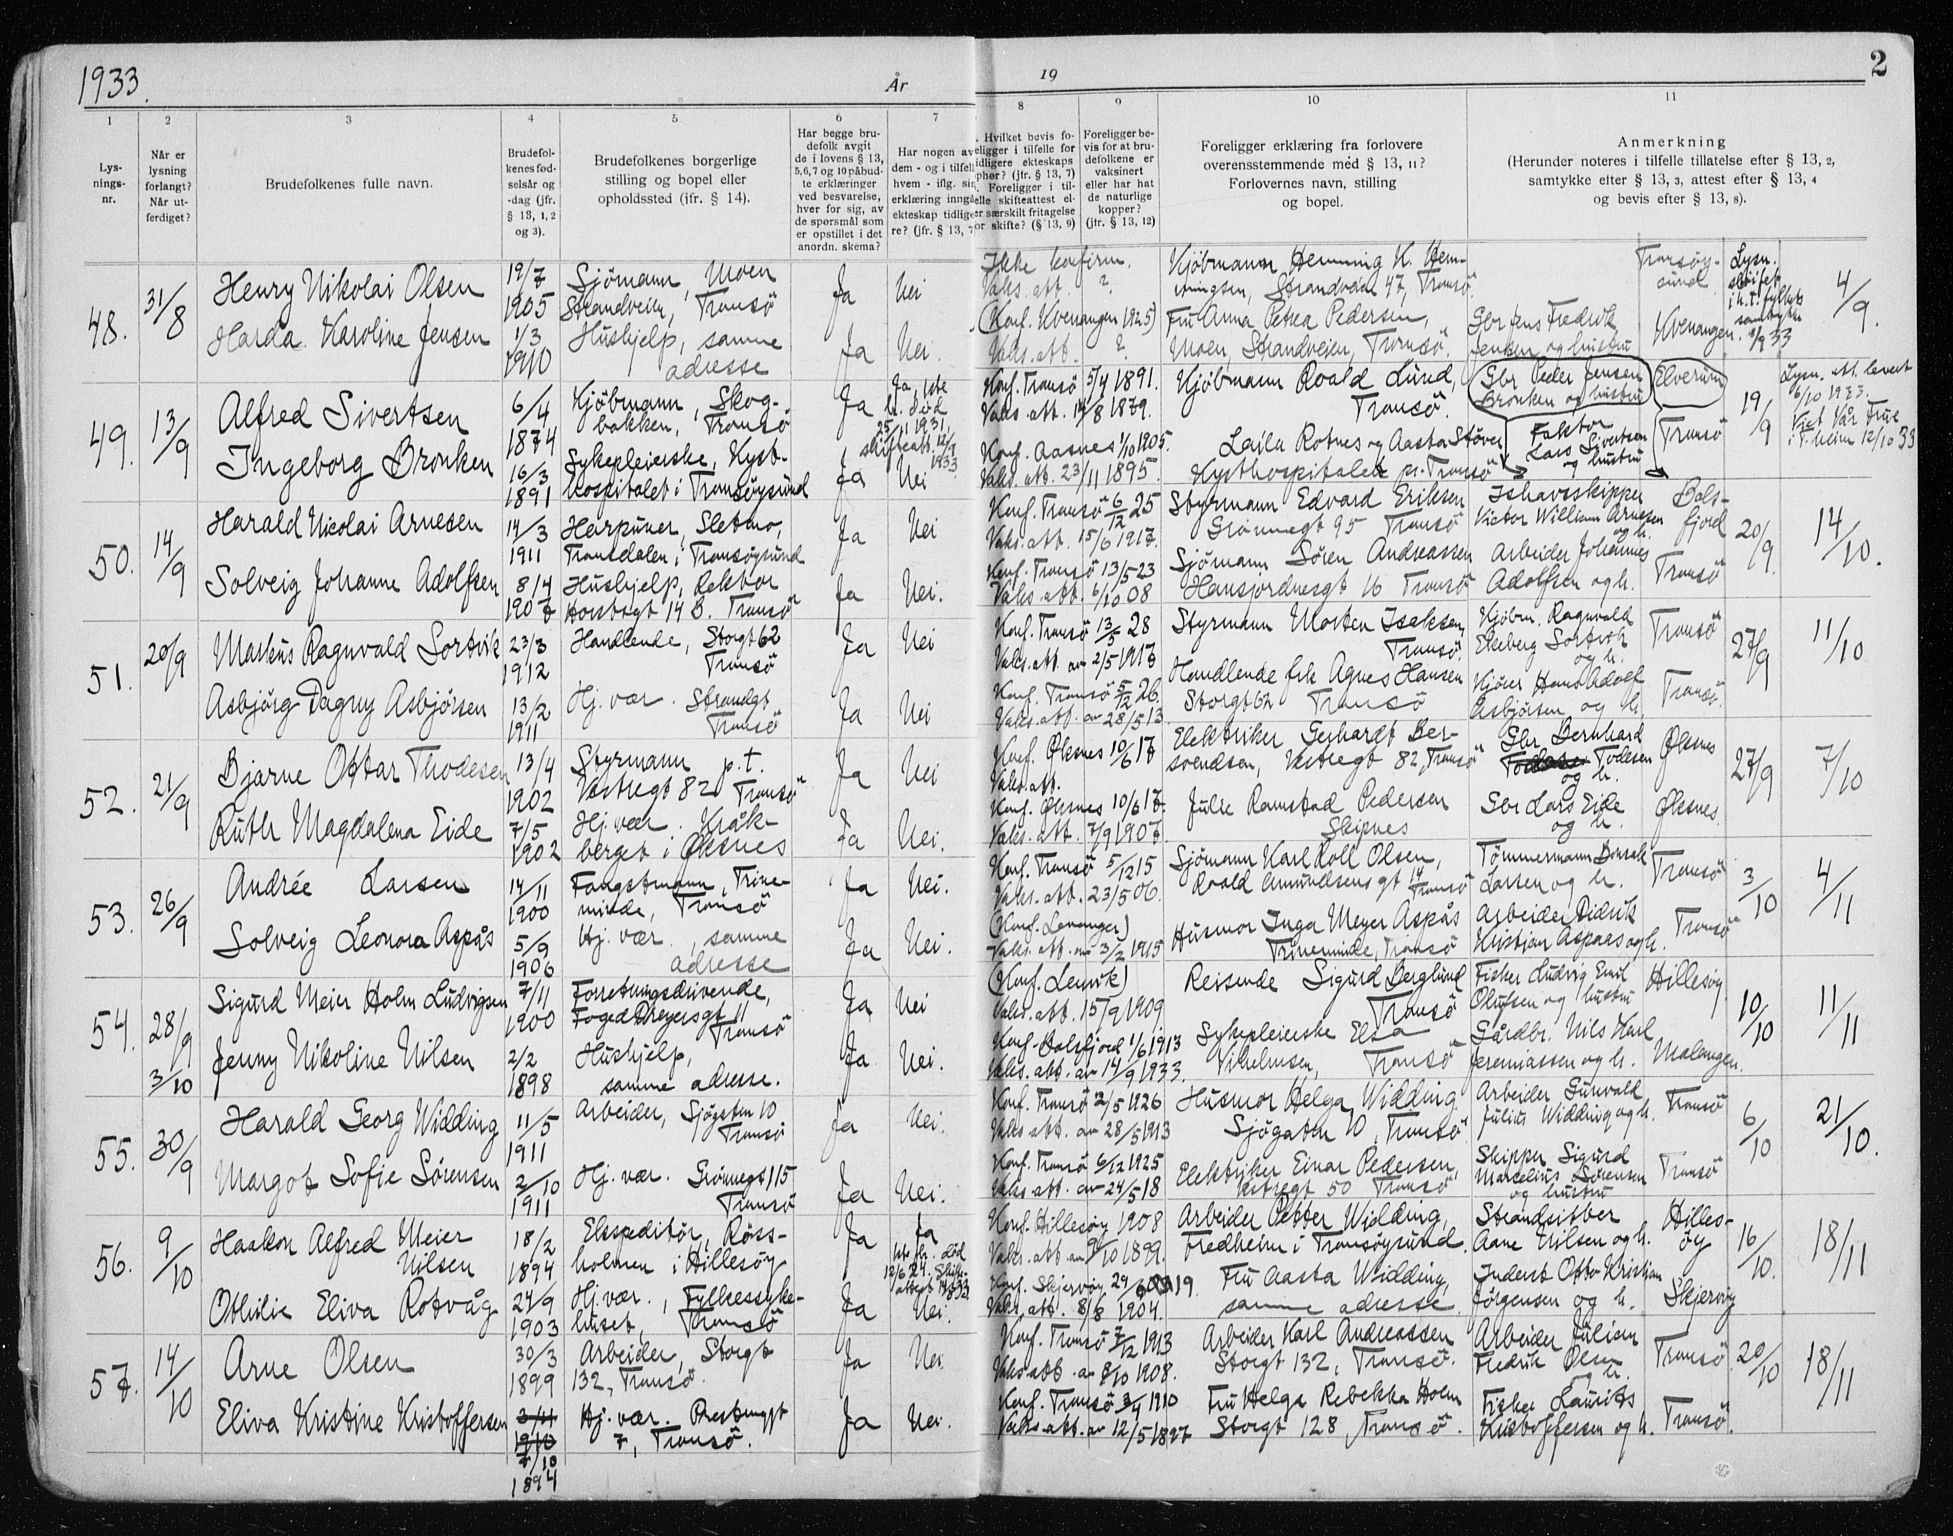 1933.
År
19
2
1 2 3 4 5 6 7 8 9 10 11
Lys-
nings-
nr.
Når er
lysning
forlangt?
Når ut-
ferdiget?
Brudefolkenes fulle navn.
Brudefol-
kenes fød-
selsår og
-dag (jfr.
§ 13, 1, 2
og 3).
Brudefolkenes borgerlige
stilling og bopel eller
opholdssted (jfr. § 14).
Har begge bru-
defolk avgit
de i lovens § 13,
5, 6, 7 og 10 påbud-
te erklæringer
ved besvarelse,
hver for sig, av
de spørsmål som
er opstillet i det
anordn. skema?
Har nogen av
dem - og i tilfell
hvem - iflg. sin
erklæring inngå
ekteskap tidlige
re? (jfr. § 13, 7
Hvilket bevis fo-
eligger i tilfelle for
idligere ekteskaps
opher? (jfr. § 13, 7)
Foreligger i til-
elle skifteattest el-
er særskilt fritagelse
or skifte? (§ 13, 9)
Foreligger be-
vis for at bru-
defolkene er
vaksinert
eller har hat
de naturlige
kopper?
(jfr. § 13, 12)
Foreligger erklæring fra forlovere
overensstemmende med § 13, 11?
Forlovernes navn, stilling
og bopel.
Anmerkning
(Herunder noteres i tilfelle tillatelse efter § 13, 2,
samtykke efter § 13, 3, attest efter § 13, 4
og bevis efter § 13, 8).
48. 31/8 Henry Nikolai Olsen 19/7 1905 Sjömann, Moen
Strandveien, Tromsö Ja Nei Ikke konfirm.
Vaks. att. ? Kjöbmann Henning K. Hen-
ningsen, Strandveien 47, Tromsö. Tromsöy-
sund Lysn.
sløifet
i h. t. fylkets
samtykke
1/9 33 4/9.
Harda Karoline Jensen 1/3 1910 Hushjelp, samme
adresse Ja Nei. (Konf. Kvenangen 1925)
Vaks. att. ? Fru Anna Petrea Pedersen,
Moen, Strandveien, Tromsö. Gbr Jens Fredrik
Jensen og hustru Kvenangen.
49. 13/9 Alfred Sivertsen 6/4 1874 Kjöbmann, Skog-
bakken, Tromsö Ja Ja, 1ste
h. död
25/11 1931,
skifteatt. 12/9
1933 Konf. Tromsö 5/4 1891.
Vaks. att. 14/8 1879. Kjöbmann Roald Lund,
Tromsö. Gbr Peder Jensen
Bronken og hustru Elverum 19/9 Lysn. att. levert
6/10 1933.
Viet Vår Frue
i T.heim 12/10 33
Ingeborg Bronken 16/3 1891 Sykepleierske, Kyst-
hospitalet i Tromsöysund Ja Nei Konf. Aasnes 1/10 1905.
Vaks. att. 23/11 1895. Laila Rotnes og Aasta Støver
Kysthospitalet pr. Tromsö Faktor
Lars Sivertsen
og hustru Tromsö
50. 14/9 Harald Nicolai Arnesen 14/3 1911 Harpuner, Sletmo,
Tromsdalen i Tromsöysund Ja Nei Konf. Tromsö 6/12 25
Vaks. att. 15/6 1917. Styrmann Edvard Eriksen
Grönnegt 95 Tromsö Ishavsskipper
Victor William Arnesen
og h. Bals-
fjord 20/9. 14/10.
Solveig Johanne Adolfsen 8/4 1907 Hushjelp, Rektor
Horstsgt 14 B. Tromsö Ja Nei. Konf. Tromsö 13/5 23
Vaks. att. 6/10 08 Sjömann Sören Andreassen
Hansjordnesgt 16 Tromsö Arbeider Johannes
Adolfsen og h. Tromsö
51. 20/9 Markus Ragnvald Sortvik 23/3 1912 Handlende, Storgt 62
Tromsö Ja Nei Konf. Tromsö 13/5 28
Vaks. att. av 2/5 1917 Styrmann Morten Isaksen,
Tromsö. Kjöbm. Ragnvald
Ekeberg Sortvik
og h. Tromsö 27/9 11/10
Asbjörg Dagny Asbjörsen 13/2 1911 Hj. vær. Strandgt
Tromsö Ja Nei Konf. Tromsö 5/12 26.
Vaks. att. av 28/5 13 Handlende frk Agnes Hansen
Storgt 62 Tromsö Kjörer Hans Adolf
Asbjörsen og h. Tromsö.
52. 21/9 Bjarne Ottar Thodesen 13/4 1902 Styrmann p.t.
Vestregt 82 Tromsö Ja Nei Konf. Öksnes 10/6 17
Vaks. att. Elektriker Gerhardt Ber-
svendsen, Vestregt 82, Tromsö Gbr Bernhard
Todesen
og h. Öksnes 27/9 7/10
Ruth Magdalena Eide 7/5 1902 Hj. vær. Kråk-
berget i Öksnes Ja Nei. Konf. Öksnes 10/6 17.
Vaks. att. 7/9 1907. Julie Ramstad Pedersen
Skipnes Gbr Lars Eide
og h. Öksnes.
53. 26/9 Andrée Larsen 14/11 1900 Fangstmann, Trine-
minde, Tromsö Ja Nei. Konf. Tromsö 5/12 15
Vaks. att. 23/5 06. Sjömann Karl Roll Olsen,
Roald Amundsens gt 14
Tromsö Tömmermann
Larsen og h. Tromsö 3/10 4/11
Solveig Leonora Aspås 5/9 1906 Hj. vær., samme
adresse Ja Nei. (Konf. Levanger)
Vaks. att. av 3/2 1915 Husmor Inga Meyer Aspås
Trineminde, Tromsö Arbeider Didrik
Kristian Aspaas og h. Tromsö
54. 28/9 3/10 Sigurd Meier Holm Ludvigsen 7/11 1900 Forretningsdrivende,
Foged Dreyersgt 11
Tromsö Ja Nei (Konf. Lenvik)
Vaks. att. 15/9 1909 Reisende Sigurd Berglund
Tromsö Fisker Ludvig Emil
Olufsen og hustru Hillesöy 10/10 11/11
Jenny Nikoline Nilsen 2/2 1898 Hushjelp,
samme adresse. Ja Nei. Konf. Balsfjord 1/6 1913
Vaks. att. av 14/9 1933. Sykepleierske Elsa
Vilhelmsen, Tromsö Gårdbr. Nils Karl
Jeremiassen og h. Malangen.
55. 30/9 Harald Georg Widding 11/5 1911 Arbeider, Sjögaten 10
Tromsö Ja Nei. Konf. Tromsö 2/5 1926
Vaks. att. av 28/5 1913 Husmor Helga Widding
Sjögaten 10, Tromsö Arbeider Gunvald
Julius Widding og h. Tromsö 6/10 21/10.
Margot Sofie Sørensen 2/10 1911 Hj. vær. Grönnegt 115
Tromsö Ja Nei. Konf. Tromsö 6/12 1925
Vaks. att. av 24/5 18 Elektriker Einar Pedersen,
Vestregt 50 Tromsö Skipper Sigurd
Marcelius Sørensen
og hustru Tromsö
56. 9/10 Haakon Alfred Meier
Nilsen 18/2 1894 Ekspeditör, Röss-
holmen i Hillesöy Ja Ja
1ste h. död
12/6 24. Skift-
attest 14/8 33 Konf. Hillesöy 1908
Vaks. att. av 9/10 1899. Arbeider Petter Widding,
Fredheim i Tromsöysund. Strandsitter
Aane Nilsen og h. Hilles-
öy 16/10. 18/11
Othilie Eliva Rotvåg 24/9 1903 Hj. vær., Fylkessyke-
huset, Tromsö Ja Nei. Konf. Skjervöy 29/6 1919
Vaks. att. 8/8 1904. Fru Aasta Widding,
samme adresse. Inderst Otto Kristian
Jörgensen og h. Skjervöy
57. 14/10 Arne Olsen 30/3 1899 Arbeider, Storgt
132, Tromsö. Ja Nei Konf. Tromsö 7/12 1913
Vaks. att. av 8/10 1908. Arbeider Karl Andreassen
Storgt 132, Tromsö. Arbeider Julian
Fredrik Olsen
og h. Tromsö. 20/10 18/11
Eliva Kristine Kristoffersen 7/10 1894 Hj. vær. Prestengt
7, Tromsö. Ja Nei. Konf. Tromsö 3/4 1910
Vaks. att. av 12/5 1897 Fru Helga Rebekka Holm
Storgt 128, Tromsö. Fisker Laurits
Kristoffersen og h. Tromsö.